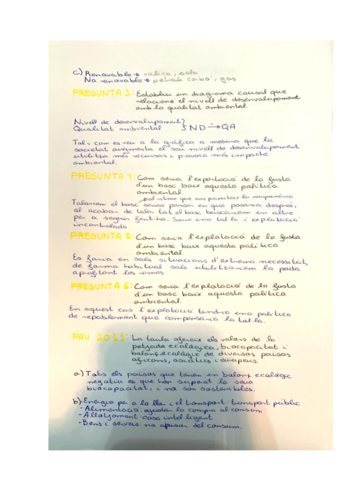 c) Renovable → eòlica, solar
No renovable → petroli, carbó, gas
PREGUNTA 3: Establiu un diagrama causal que
relacione el nivell de desenvolupament
amb la qualitat ambiental.
Nivell de desenvolupament
Qualitat ambiental } ND → QA
Tal i com es veu a la gràfica a mesura que la
societat augmenta el seu nivell de desenvolupament
utilitza més recursos i provoca més impacte
ambiental.
PREGUNTA 4: Com seria l'explotació de la fusta
d'un bosc baix aquesta política
ambiental.
Talarien el bosc sense pensar en que passaria després,
al acabar de talar tot el bosc buscarien un altre
per a seguir fent-ho. Seria una tala i explotació
incontrolada
PREGUNTA 5: Com seria l'explotació de la fusta
d'un bosc baix aquesta política
ambiental.
Es faria en sols situacions d'extrema necessitat,
de forma habitual sols utilitzarien la poda
aprofitant les rames
PREGUNTA 6: Com seria l'explotació de la fusta
d'un bosc baix aquesta política
ambiental.
En aquest cas l'explotació tindria una política
de repoblament que compensaria la tala.
PAU 2011: La taula ofereix els valors de la
petjada ecològica, biocapacitat i
balanç ecològic de diversos països
africans, asiàtics i europeus.
a) Tots els països que tenen un balanç ecològic
negatiu es que han superat la seua
biocapacitat, i no són sostenibles.
b) Energia per a la llar i el transport: transport públic
- Alimentació: ajustar la compra al consum
- Allotjament: casa intel·ligent
- Bens i serveis: no abusar del consum.